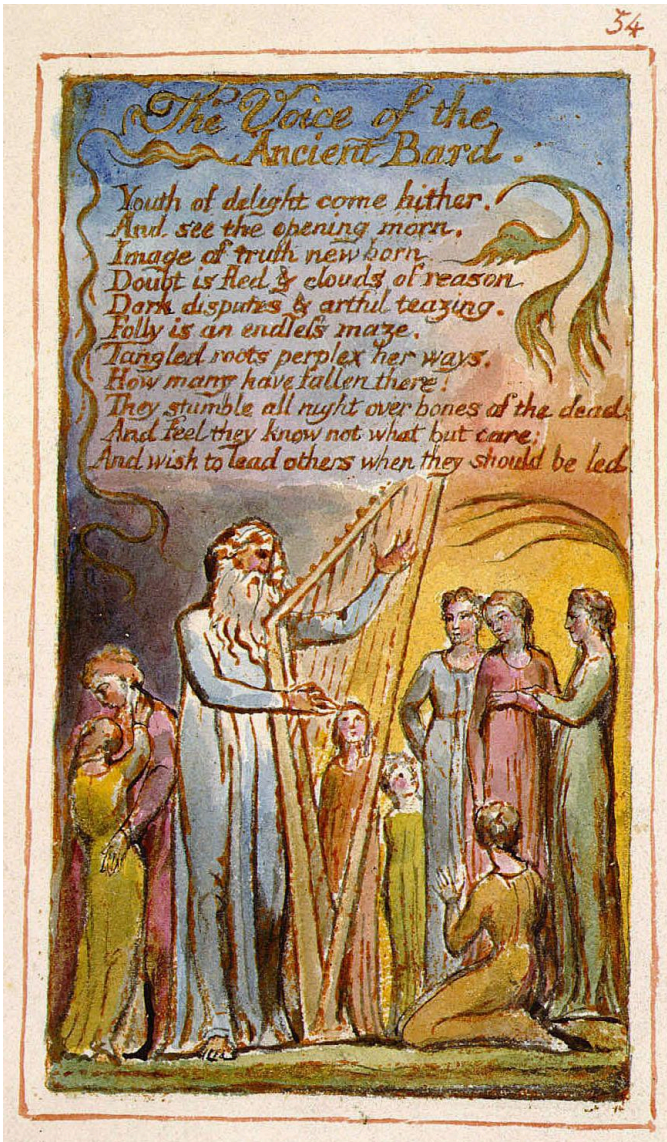 54
The Voice of the
Ancient Bard.
Youth of delight come hither.
And see the opening morn,
Image of truth new born
Doubt is fled & clouds of reason
Dark disputes & artful teazing.
Folly is an endless maze,
Tangled roots perplex her ways,
How many have fallen there!
They stumble all night over bones of the dead;
And feel they know not what but care;
And wish to lead others when they should be led.